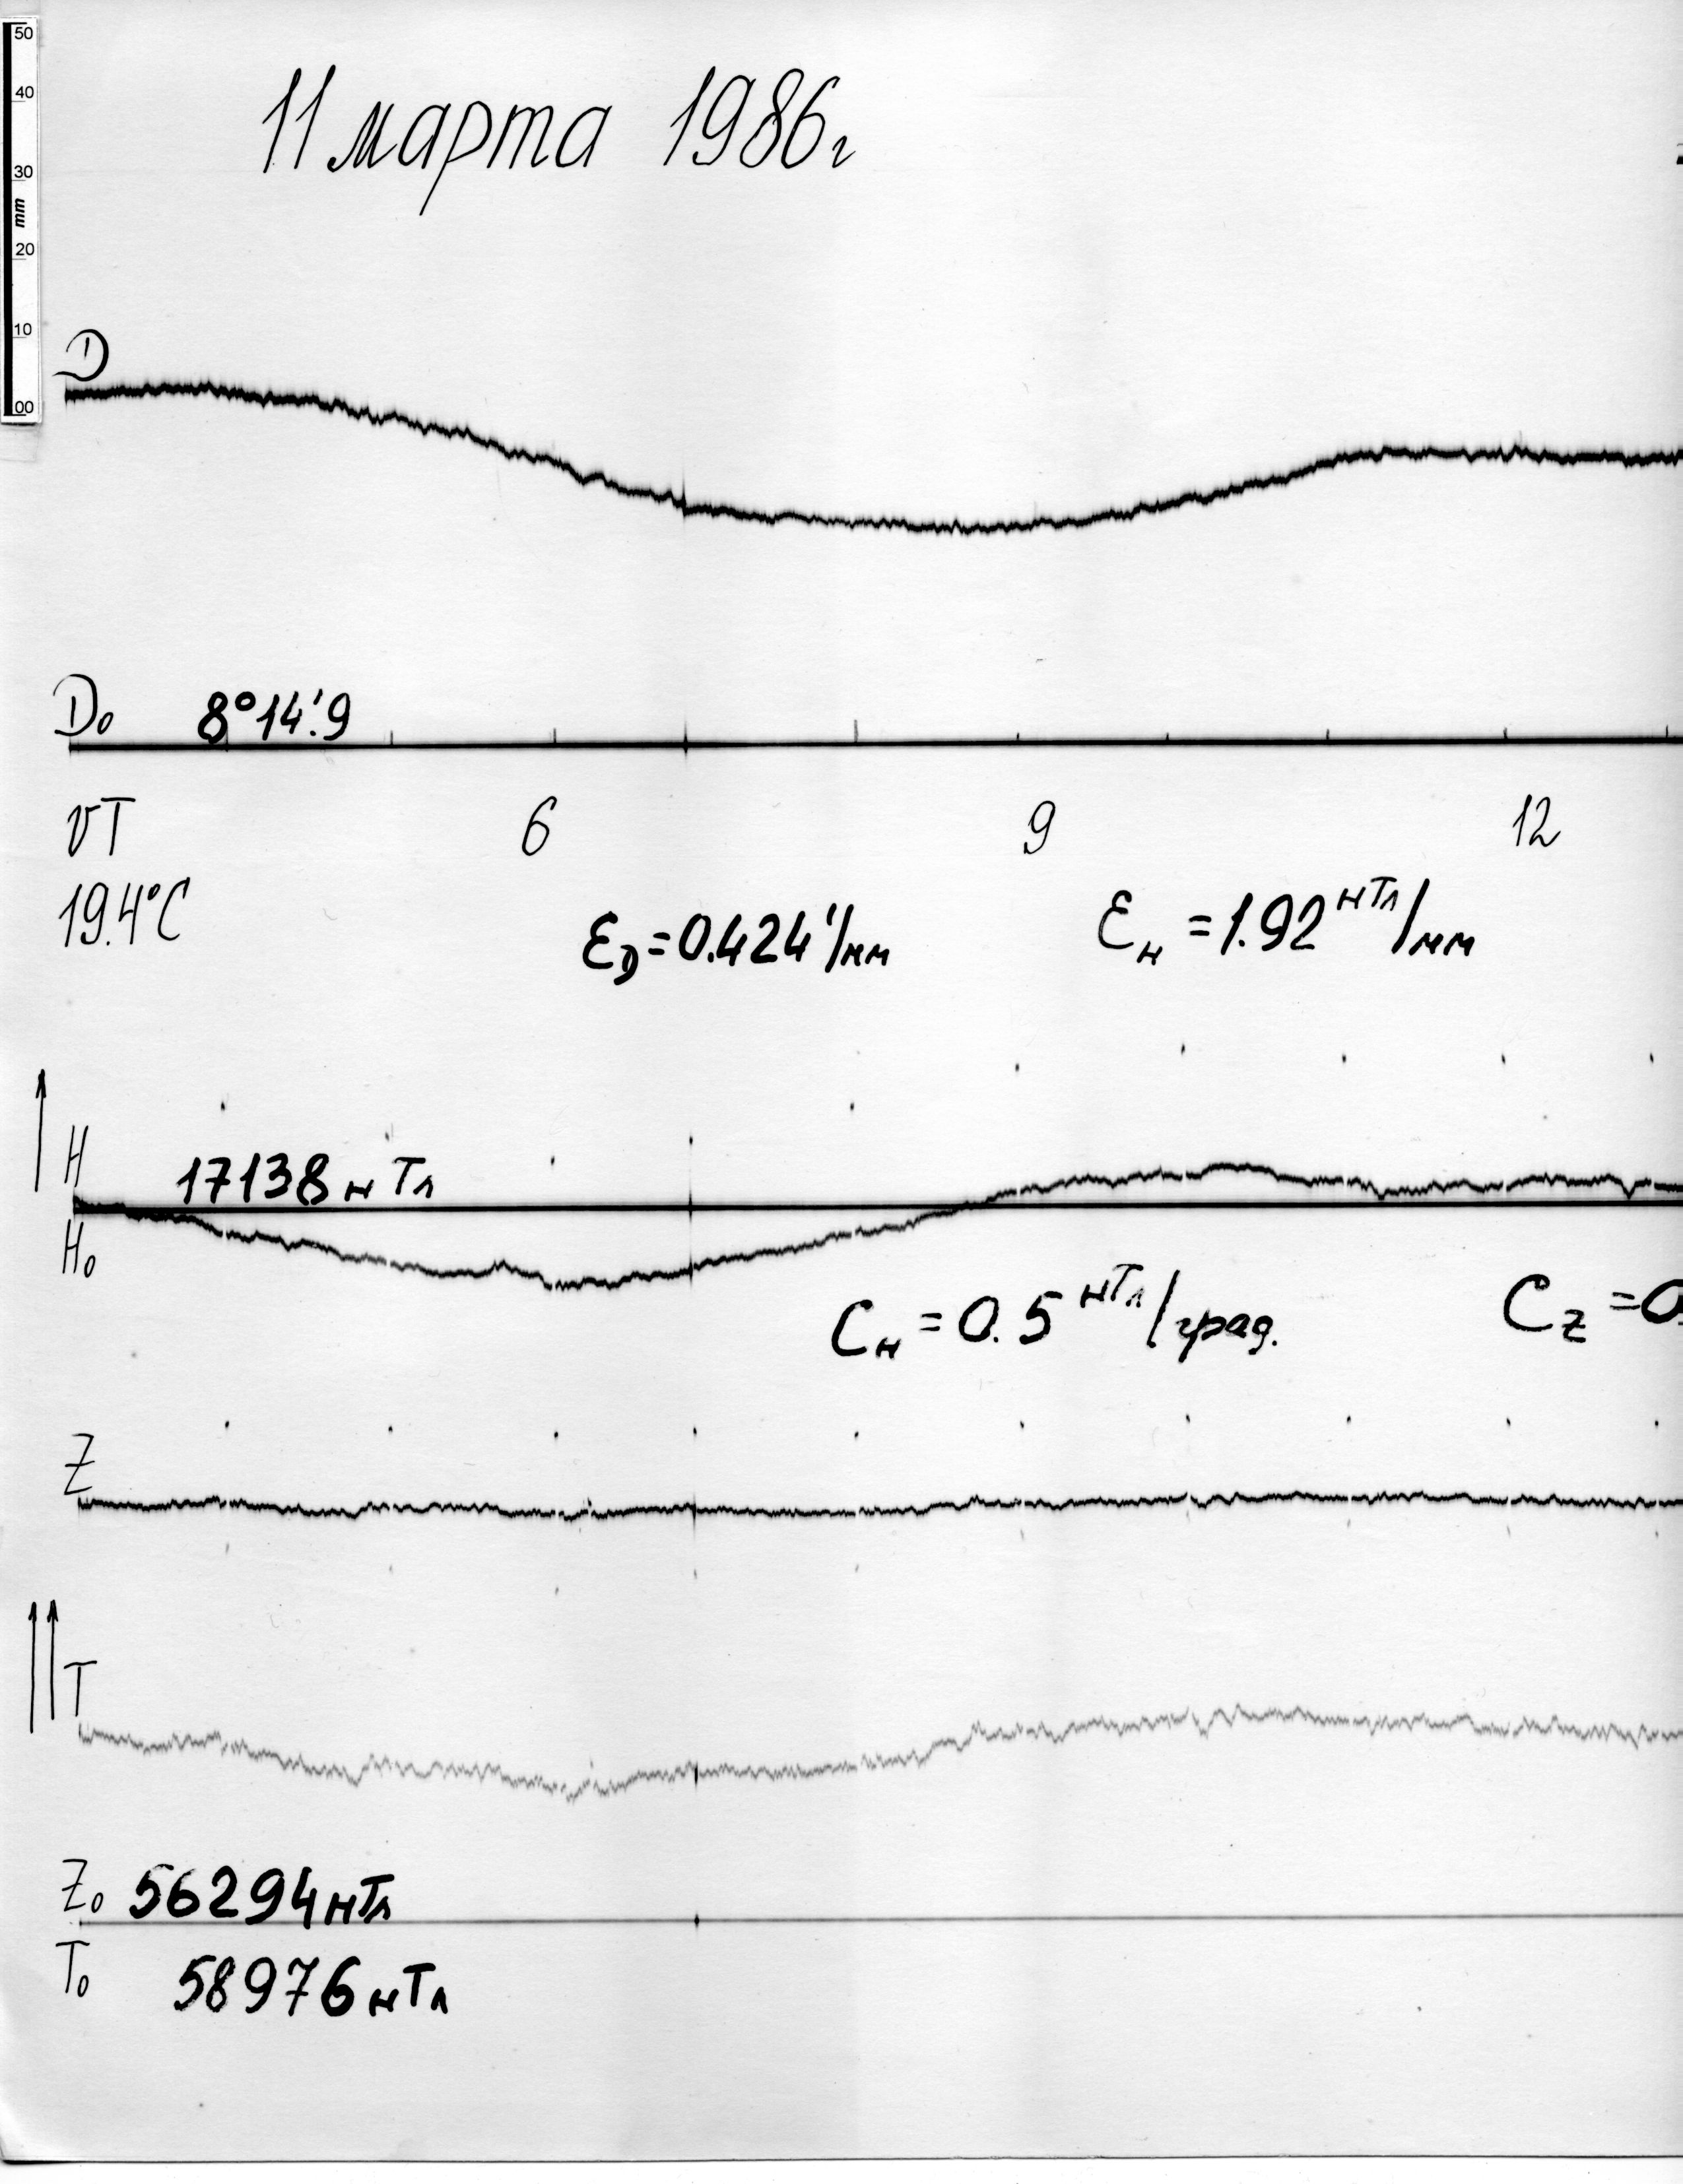 50
40
30
mm
20
10
00
11 марта 1986г
D
D₀ 8°14.'9
UT 6 9 12
19.4°C
ε_D = 0.424'/мм ε_H = 1.92 нТл/мм
H 17138 нТл
H₀
C_H = 0.5 нТл/град. C_Z = 0.
Z
T
Z₀ 56294 нТл
T₀ 58976 нТл